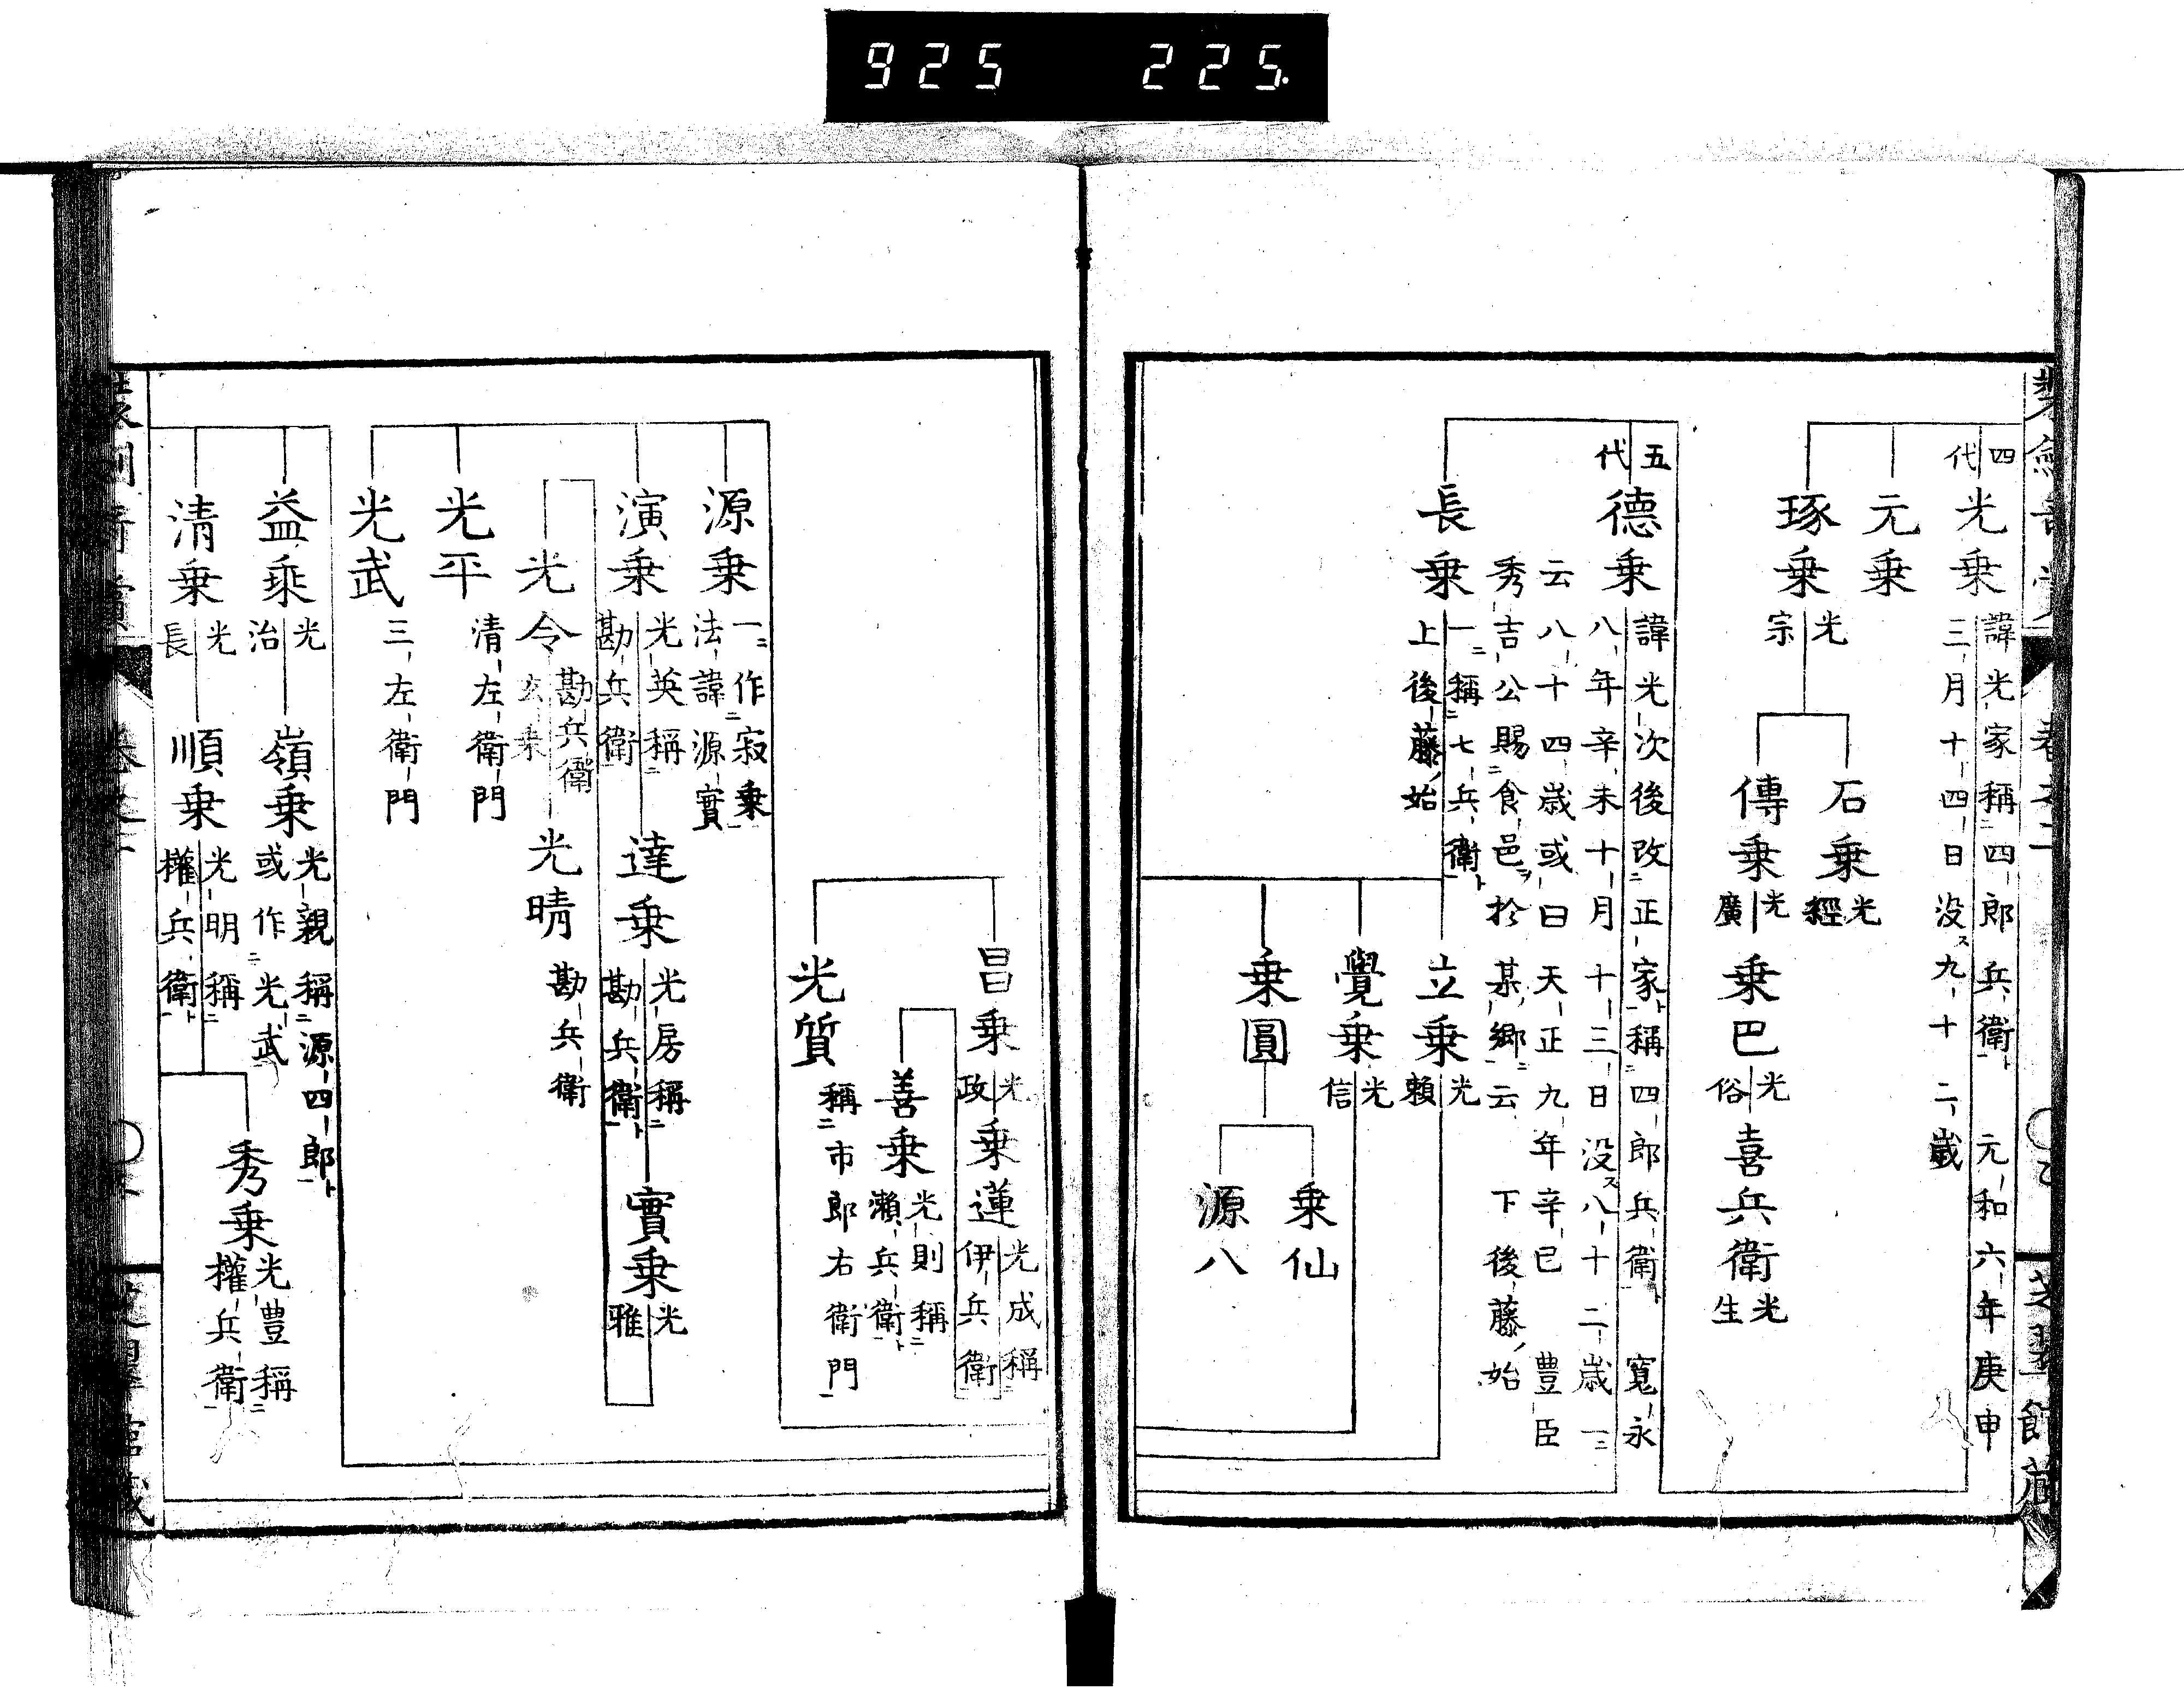 925 225.
四代
光乗
諱光家稱四郎兵衛 元和六年庚申
三月十四日没九十二歳
元乗
琢乗
光宗
石乗
光經
傳乗
光廣
乗巴
光俗
喜兵衛
光生
五代
德乗
諱光次後改正家稱四郎兵衛 寬永
八年辛未十月十三日没八十二歳一
云八十四歳或曰天正九年辛巳 豊臣
秀吉公賜食邑於某郷云 下後藤始
長乗
一稱七兵衛
上後藤始
立乗
光賴
覺乗
光信
乗圓
乗仙
源八
昌乗
光政
乗蓮
光成稱
伊兵衛
善乗
光則稱
瀨兵衛
光質
稱市郎右衛門
源乗
一作寂乗
法諱源實
演乗
光英稱
勘兵衛
達乗
光房稱
勘兵衛
實乗
光雅
光令
勘兵衛
玄乗
光晴
勘兵衛
光平
清左衛門
光武
三左衛門
益乗
光治
嶺乗
光親稱源四郎
或作光武
清乗
光長
順乗
光明稱
權兵衛
秀乗
光豊稱
權兵衛